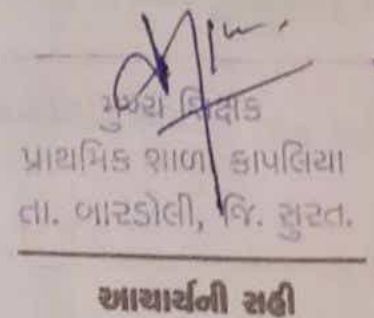 મુખ્ય શિક્ષક
પ્રાથમિક શાળા કાપલિયા
તા. બારડોલી, જિ. સુરત.
આચાર્યની સહી